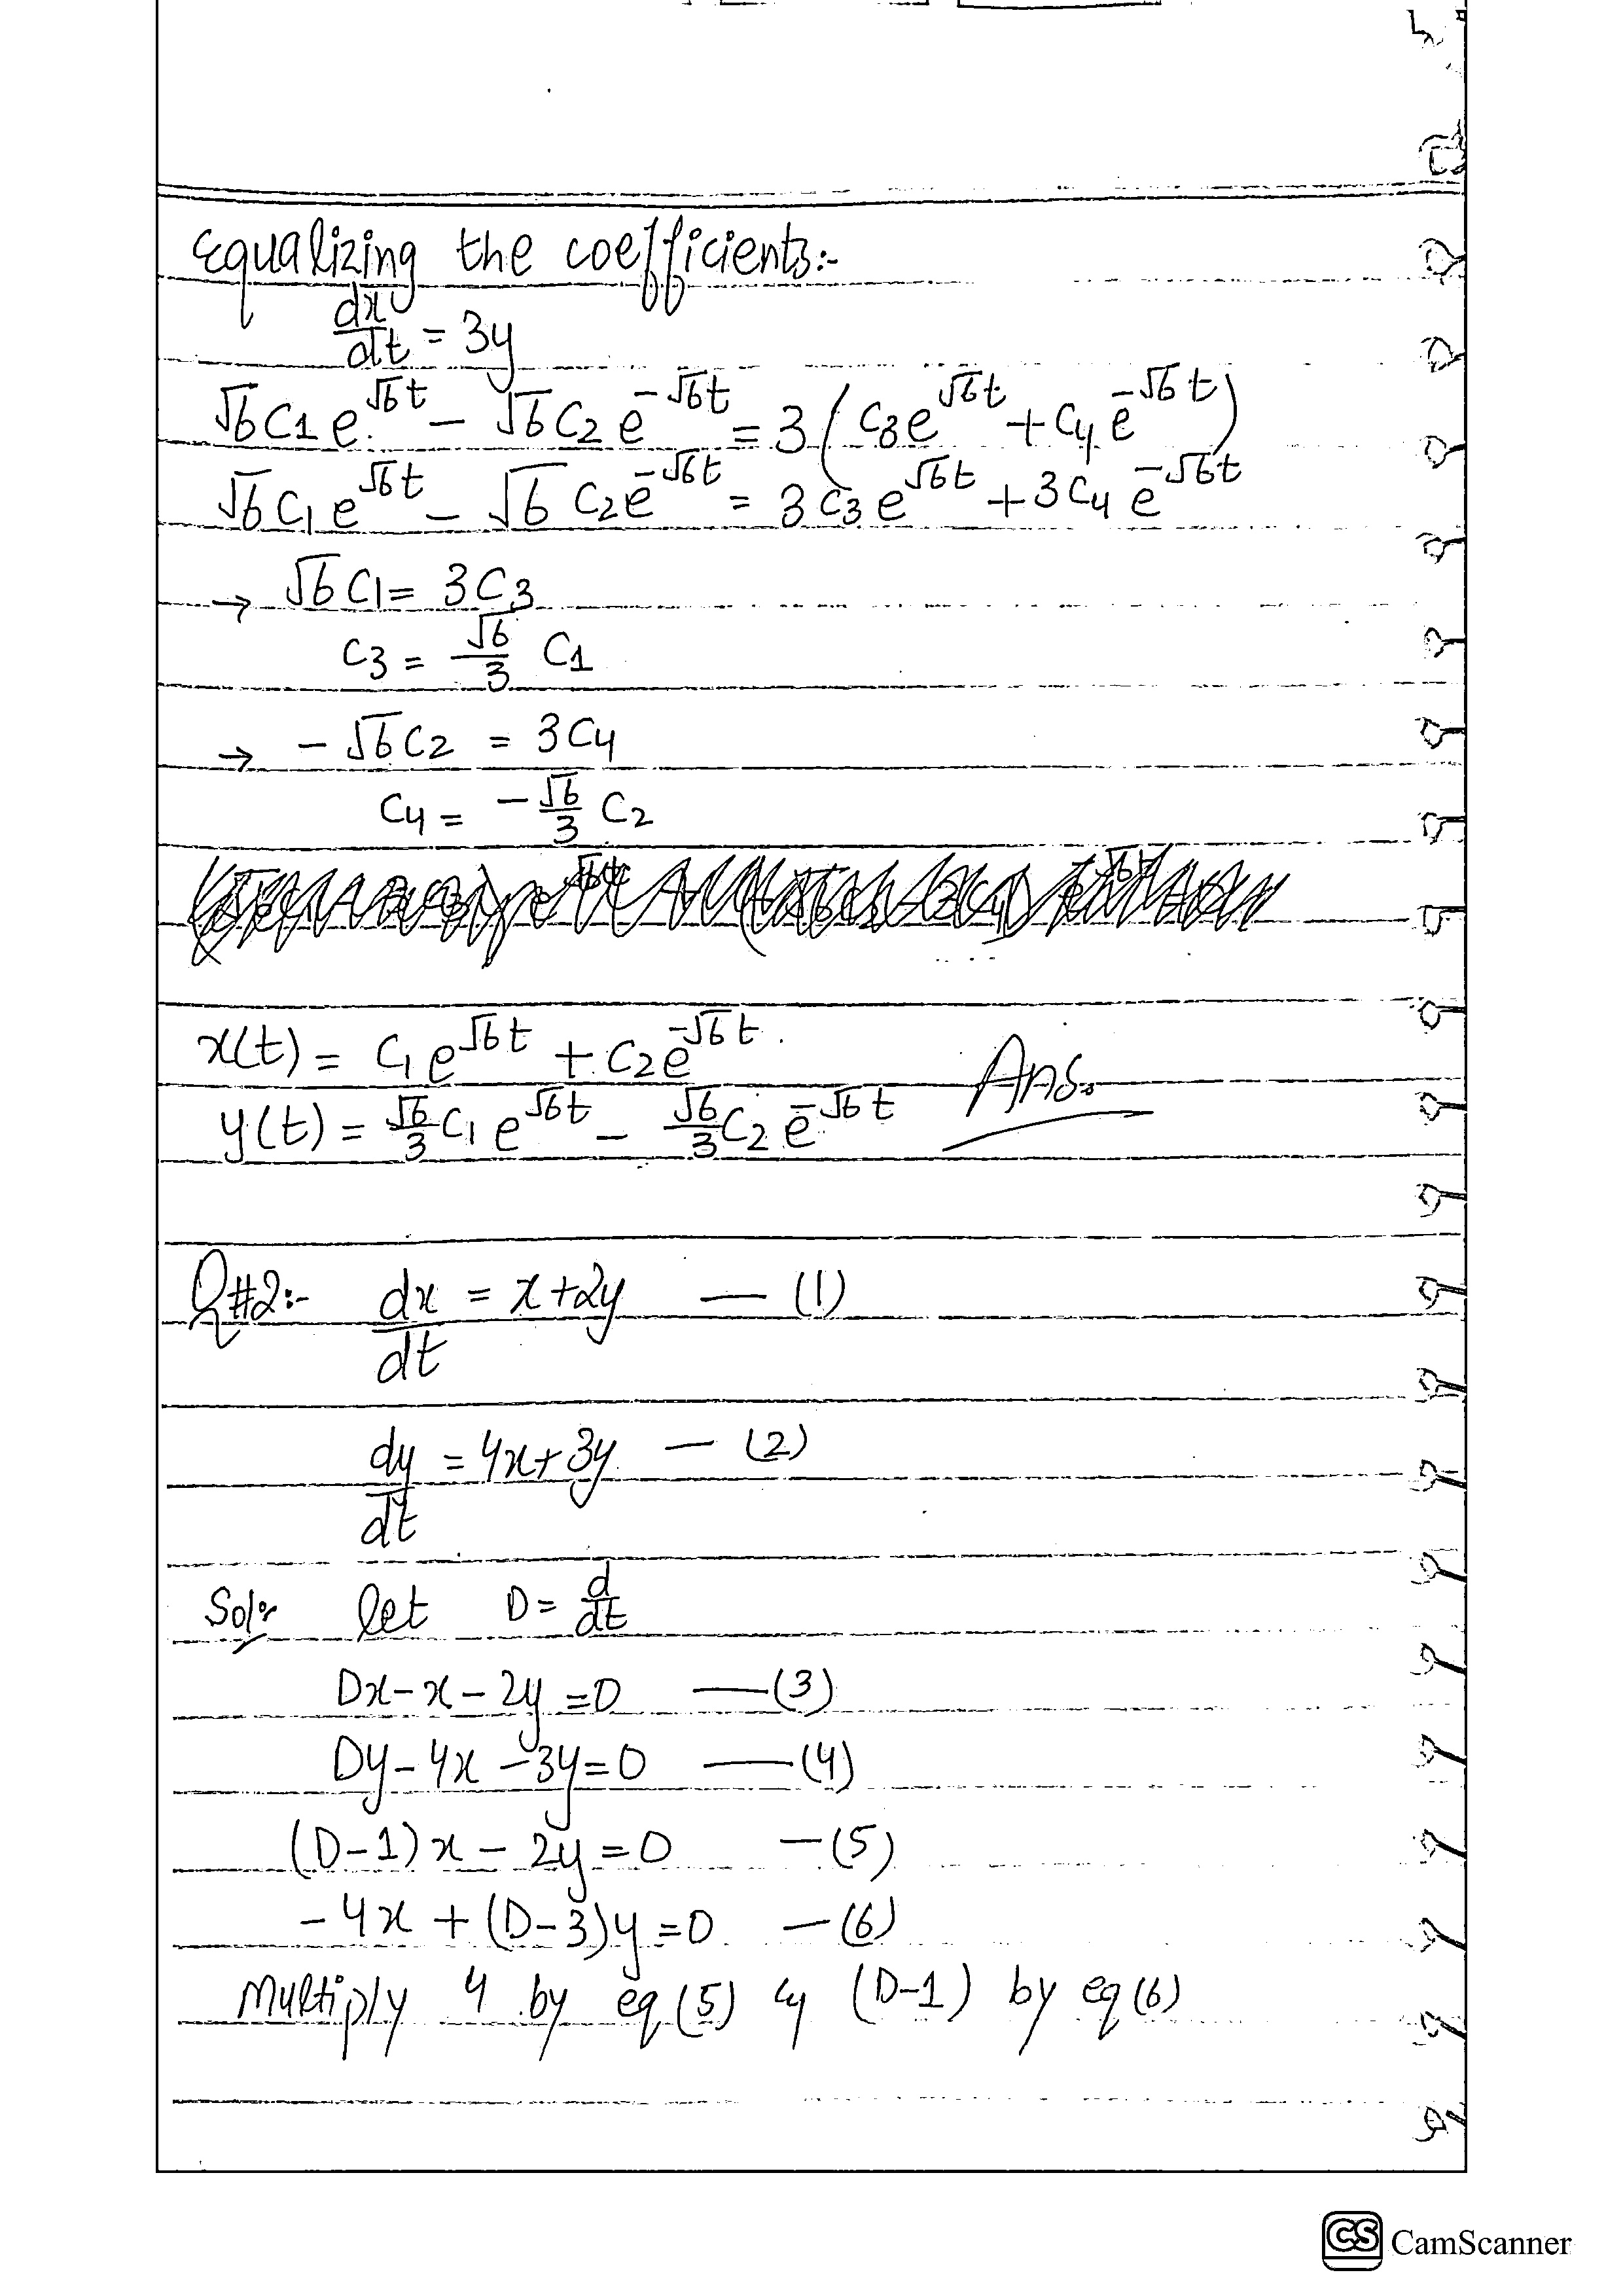 Equalizing the coefficients:-
dx/dt = 3y
√6C1e^√6t - √6C2e^-√6t = 3(C3e^√6t + C4e^-√6t)
√6C1e^√6t - √6C2e^-√6t = 3C3e^√6t + 3C4e^-√6t
→ √6C1 = 3C3
C3 = √6/3 C1
→ -√6C2 = 3C4
C4 = -√6/3 C2
x(t) = C1e^√6t + C2e^-√6t.
y(t) = √6/3 C1e^√6t - √6/3 C2e^-√6t Ans.
Q#2:- dx/dt = x+2y — (1)
dy/dt = 4x+3y — (2)
Sol: let D = d/dt
Dx-x-2y=0 —(3)
Dy-4x-3y=0 —(4)
(D-1)x-2y=0 —(5)
-4x+(D-3)y=0 —(6)
Multiply 4 by eq(5) & (D-1) by eq(6)
CS CamScanner